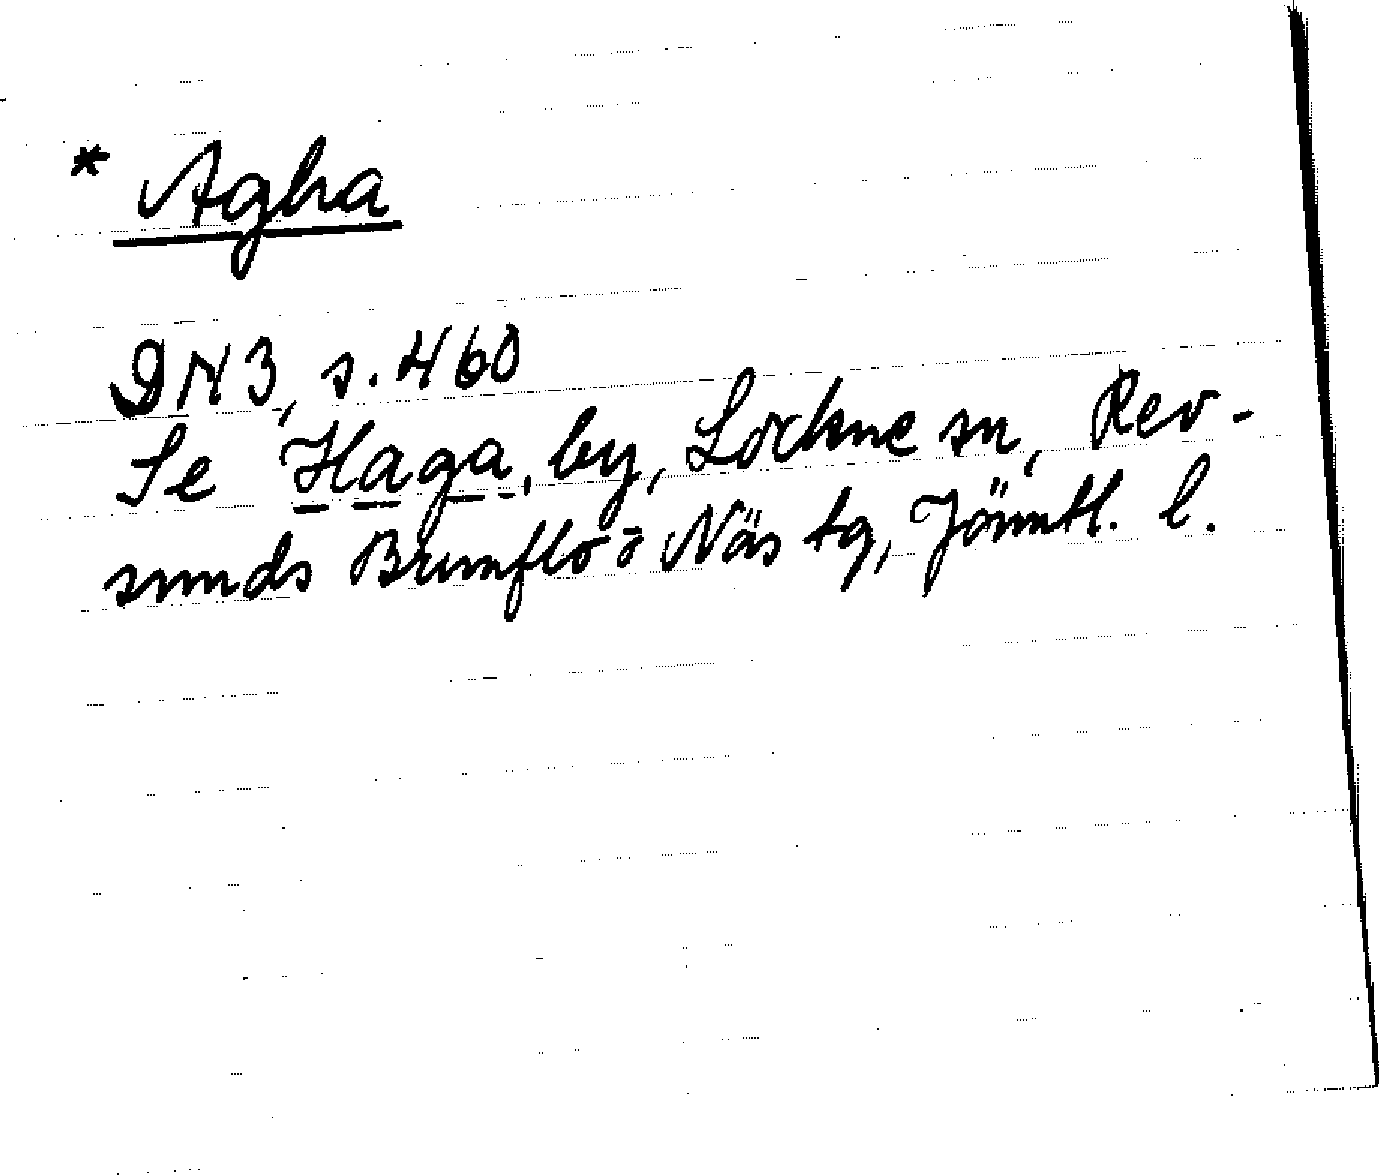 * Agha
DN 3, s. 460
Se Haga, by, Lockne sn, Rev-
sunds Brunflo = Näs tg, Jämtl. l.